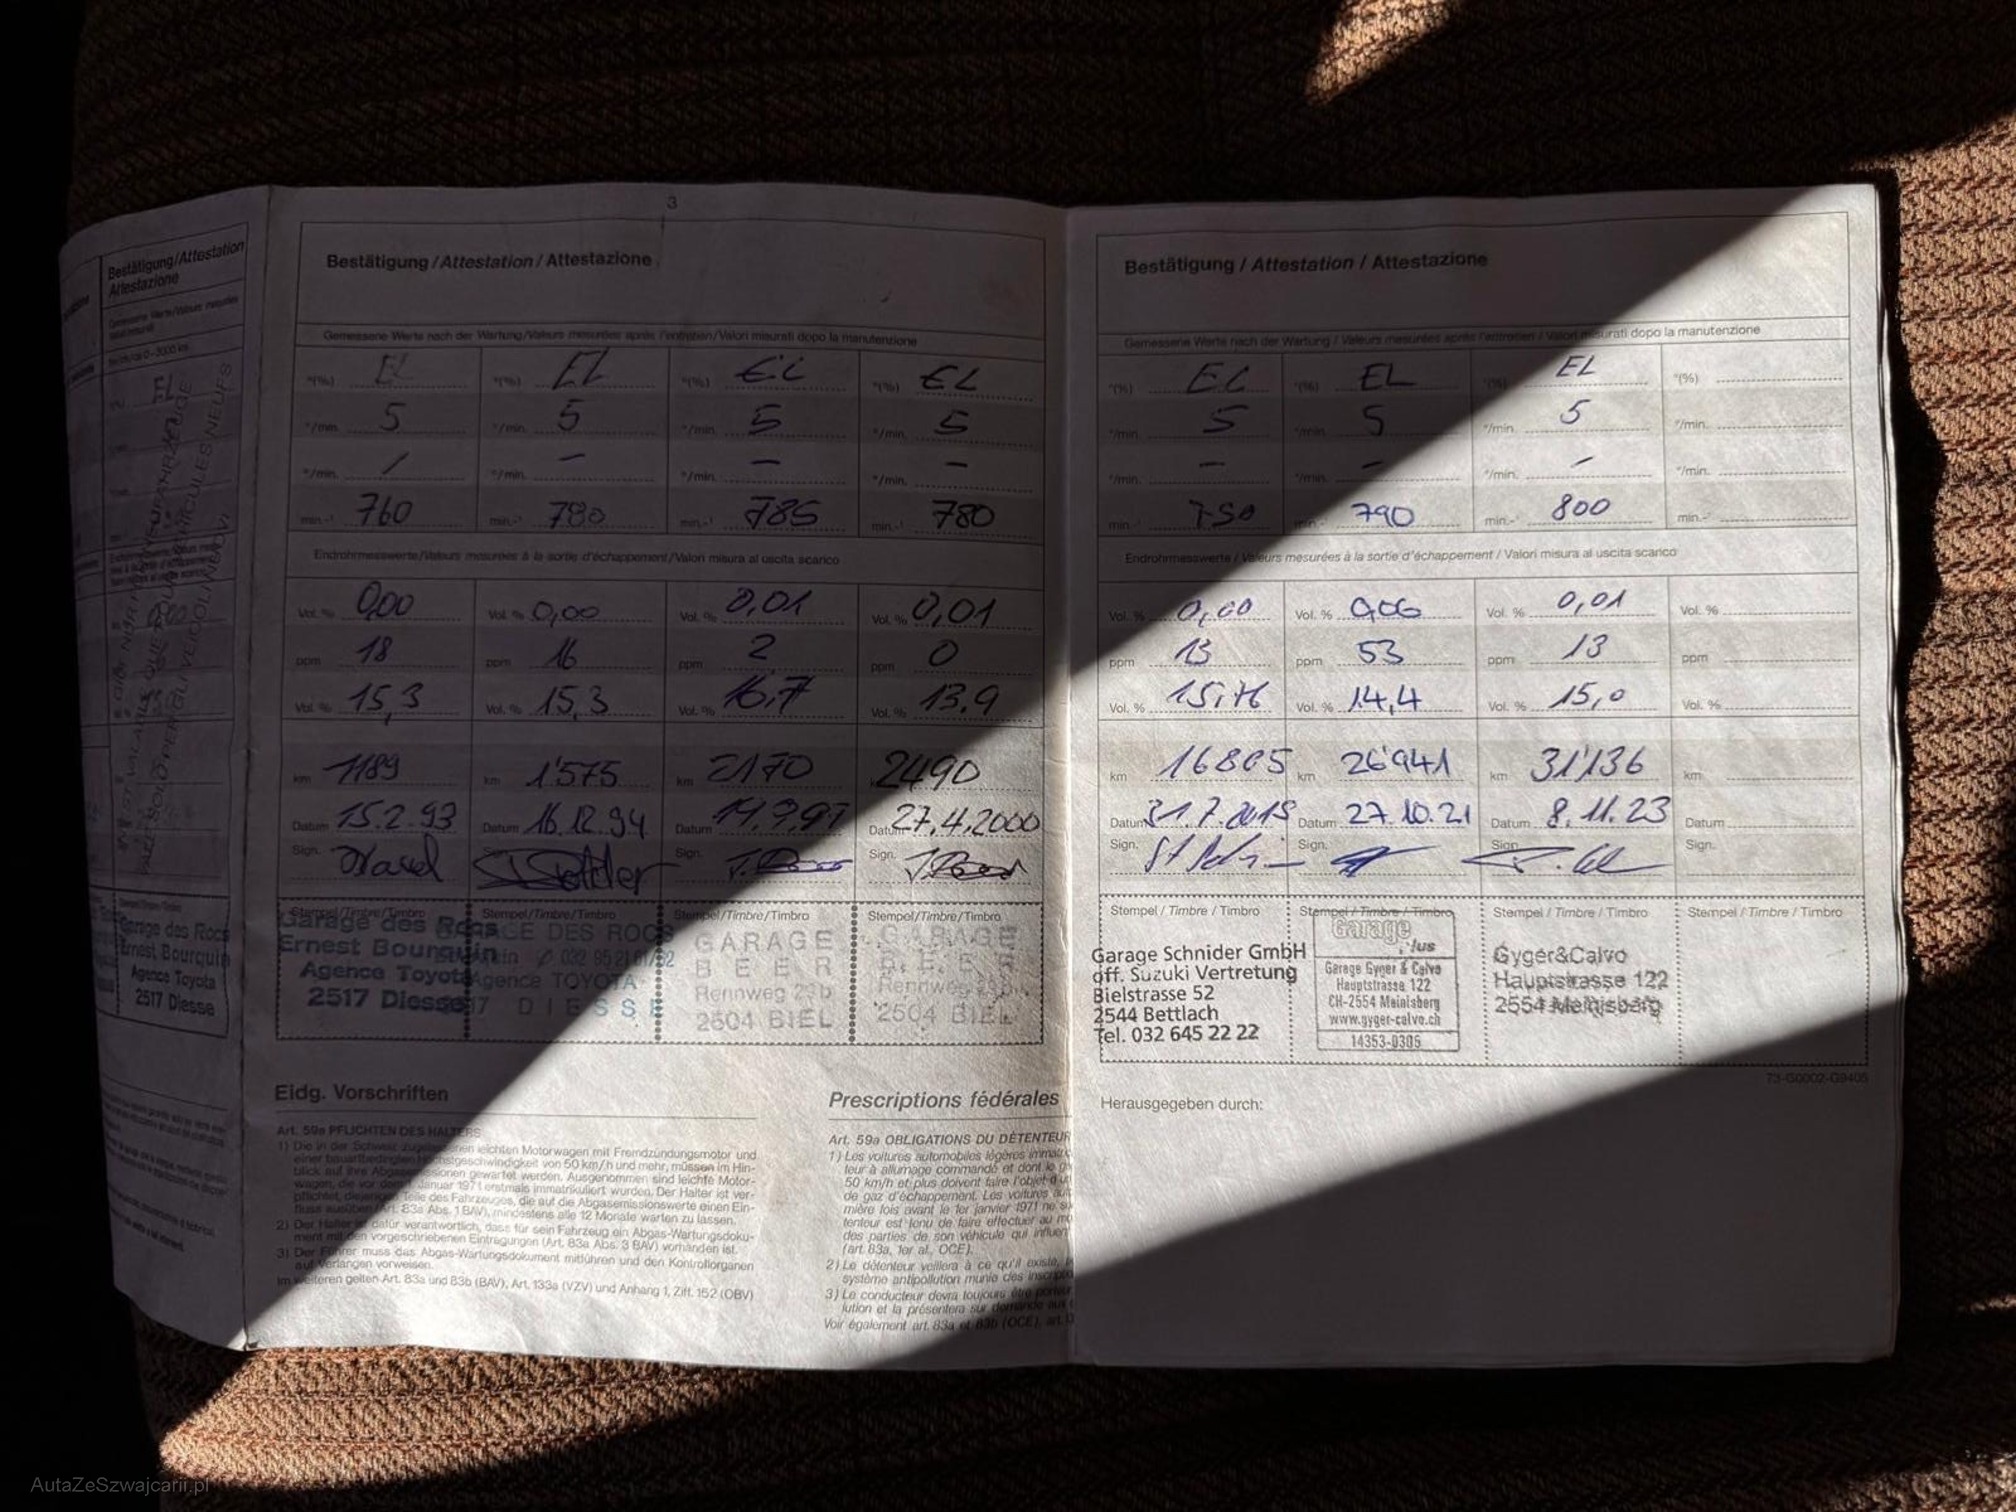 3
Bestätigung/Attestation
Attestazione
EL
Garage des Rocs
Ernest Bourquin
Agence Toyota
2517 Diesse
Bestätigung / Attestation / Attestazione
Gemessene Werte nach der Wartung/Valeurs mesurées après l'entretien/Valori misurati dopo la manutenzione
°(%) EL °(%) EL °(%) EL °(%) EL
°/min. 5 °/min. 5 °/min. 5 °/min. 5
°/min. / °/min. – °/min. – °/min. –
min.-¹ 760 min.-¹ 780 min.-¹ 785 min.-¹ 780
Endrohrmesswerte/Valeurs mesurées à la sortie d'échappement/Valori misura al uscita scarico
Vol. % 0,00 Vol. % 0,00 Vol. % 0,01 Vol. % 0,01
ppm 18 ppm 16 ppm 2 ppm 0
Vol. % 15,3 Vol. % 15,3 Vol. % 16,7 Vol. % 13,9
km 1189 km 1'575 km 2170 km 2490
Datum 15.2.93 Datum 16.12.94 Datum Datum 27.4.2000
Sign. Sign. Sign. Sign.
Stempel/Timbre/Timbro Stempel/Timbre/Timbro Stempel/Timbre/Timbro Stempel/Timbre/Timbro
Garage des Rocs
Ernest Bourquin
Agence Toyota
2517 Diesse
GARAGE DES ROCS
Agence TOYOTA
DIESSE
GARAGE
BEER
Rennweg 29b
2504 BIEL
GARAGE
BEER
Rennweg 29b
2504 BIEL
Eidg. Vorschriften
Art. 59a PFLICHTEN DES HALTERS
1) Die in der Schweiz zugelassenen leichten Motorwagen mit Fremdzündungsmotor und
einer bauartbedingten Höchstgeschwindigkeit von 50 km/h und mehr, müssen im Hin-
blick auf ihre Abgasemissionen gewartet werden. Ausgenommen sind leichte Motor-
wagen, die vor dem 1. Januar 1971 erstmals immatrikuliert wurden. Der Halter ist ver-
pflichtet, diejenigen Teile des Fahrzeuges, die auf die Abgasemissionswerte einen Ein-
fluss ausüben (Art. 83a Abs. 1 BAV), mindestens alle 12 Monate warten zu lassen.
2) Der Halter ist dafür verantwortlich, dass für sein Fahrzeug ein Abgas-Wartungsdoku-
ment mit den vorgeschriebenen Eintragungen (Art. 83a Abs. 3 BAV) vorhanden ist.
3) Der Führer muss das Abgas-Wartungsdokument mitführen und den Kontrollorganen
auf Verlangen vorweisen.
Im weiteren gelten Art. 83a und 83b (BAV), Art. 133a (VZV) und Anhang 1, Ziff. 152 (OBV)
Prescriptions fédérales
Art. 59a OBLIGATIONS DU DÉTENTEUR
1) Les voitures automobiles légères
teur à allumage commandé et dont la
50 km/h et plus doivent faire l'objet d'un
de gaz d'échappement. Les voitures
mière fois avant le 1er janvier 1971 ne
tenteur est tenu de faire effectuer au
des parties de son véhicule qui
(art. 83a, 1er al., OCE).
2) Le détenteur veillera à ce qu'il existe,
système antipollution munie des
3) Le conducteur devra toujours être
lution et la présentera sur demande aux
Voir également art. 83a et 83b (OCE), art.
Bestätigung / Attestation / Attestazione
Gemessene Werte nach der Wartung / Valeurs mesurées après l'entretien / Valori misurati dopo la manutenzione
°(%) EL °(%) EL °(%) EL °(%)
°/min. 5 °/min. 5 °/min. 5 °/min.
°/min. – °/min. – °/min. – °/min.
min.-¹ 750 min.-¹ 790 min.-¹ 800 min.-¹
Endrohrmesswerte / Valeurs mesurées à la sortie d'échappement / Valori misura al uscita scarico
Vol. % 0,00 Vol. % 0,06 Vol. % 0,01 Vol. %
ppm 13 ppm 53 ppm 13 ppm
Vol. % 15,16 Vol. % 14,4 Vol. % 15,0 Vol. %
km 16805 km 26'941 km 31'136 km
Datum 31.7.2015 Datum 27.10.21 Datum 8.11.23 Datum
Sign. Sign. Sign. Sign.
Stempel / Timbre / Timbro Stempel / Timbre / Timbro Stempel / Timbre / Timbro Stempel / Timbre / Timbro
Garage Schnider GmbH
off. Suzuki Vertretung
Bielstrasse 52
2544 Bettlach
Tel. 032 645 22 22
Garage
plus
Garage Gyger & Calvo
Hauptstrasse 122
CH-2554 Meinisberg
www.gyger-calvo.ch
14353-0305
Gyger&Calvo
Hauptstrasse 122
2554 Meinisberg
73-G0002-G9405
Herausgegeben durch:
AutaZeSzwajcarii.pl